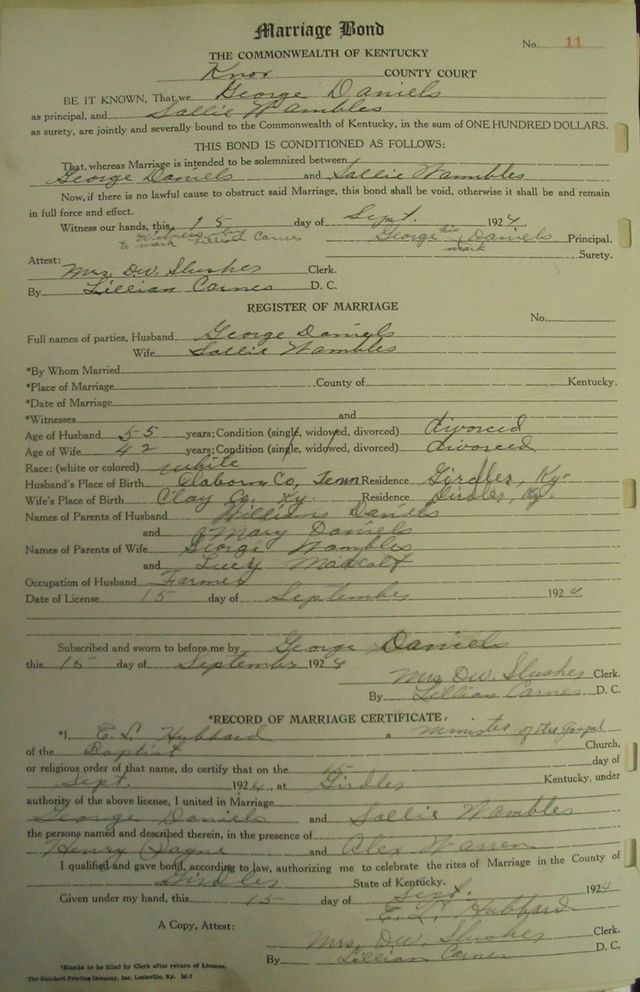 Marriage Bond
No. 11
THE COMMONWEALTH OF KENTUCKY
Knox COUNTY COURT
BE IT KNOWN, That we George Daniels
as principal, and Sallie Wambles
as surety, are jointly and severally bound to the Commonwealth of Kentucky, in the sum of ONE HUNDRED DOLLARS.
THIS BOND IS CONDITIONED AS FOLLOWS:
That, whereas Marriage is intended to be solemnized between
George Daniels and Sallie Wambles
Now, if there is no lawful cause to obstruct said Marriage, this bond shall be void, otherwise it shall be and remain
in full force and effect.
Witness our hands, this 15 day of Sept. 1924
Witness to mark Lillian Carnes George his mark Daniels Principal.
Surety.
Attest:
Mrs. D.W. Slusher Clerk.
By Lillian Carnes D. C.
REGISTER OF MARRIAGE
No.
Full names of parties, Husband George Daniels
Wife Sallie Wambles
*By Whom Married
*Place of Marriage County of Kentucky.
*Date of Marriage
*Witnesses and
Age of Husband 55 years; Condition (single, widowed, divorced) divorced
Age of Wife 42 years; Condition (single, widowed, divorced) divorced
Race: (white or colored) white
Husband's Place of Birth Claborn Co, Tenn Residence Girdler, Ky.
Wife's Place of Birth Clay Co. Ky. Residence Girdler, Ky.
Names of Parents of Husband Williams Daniels
and Mary Daniels
Names of Parents of Wife George Wambles
and Lucy Madcalf
Occupation of Husband Farmer
Date of License 15 day of September 1924
Subscribed and sworn to before me by George Daniels
this 15 day of September 1924
Mrs. D.W. Slusher Clerk.
By Lillian Carnes D. C.
*RECORD OF MARRIAGE CERTIFICATE.
*I, E. L. Hubbard a minister of the Gospel
of the Baptist Church,
or religious order of that name, do certify that on the 15 day of
Sept. 1924, at Girdler Kentucky, under
authority of the above license, I united in Marriage
George Daniels and Sallie Wambles
the persons named and described therein, in the presence of
Henry Payne and Alex Warren
I qualified and gave bond, according to law, authorizing me to celebrate the rites of Marriage in the County of
Girdler State of Kentucky.
Given under my hand, this 15 day of Sept. 1924
E. L. Hubbard
A Copy, Attest:
Mrs. D.W. Slusher Clerk.
By Lillian Carnes D. C.
*Blanks to be filled by Clerk after return of License.
The Standard Printing Company, Inc. Louisville, Ky. M-7